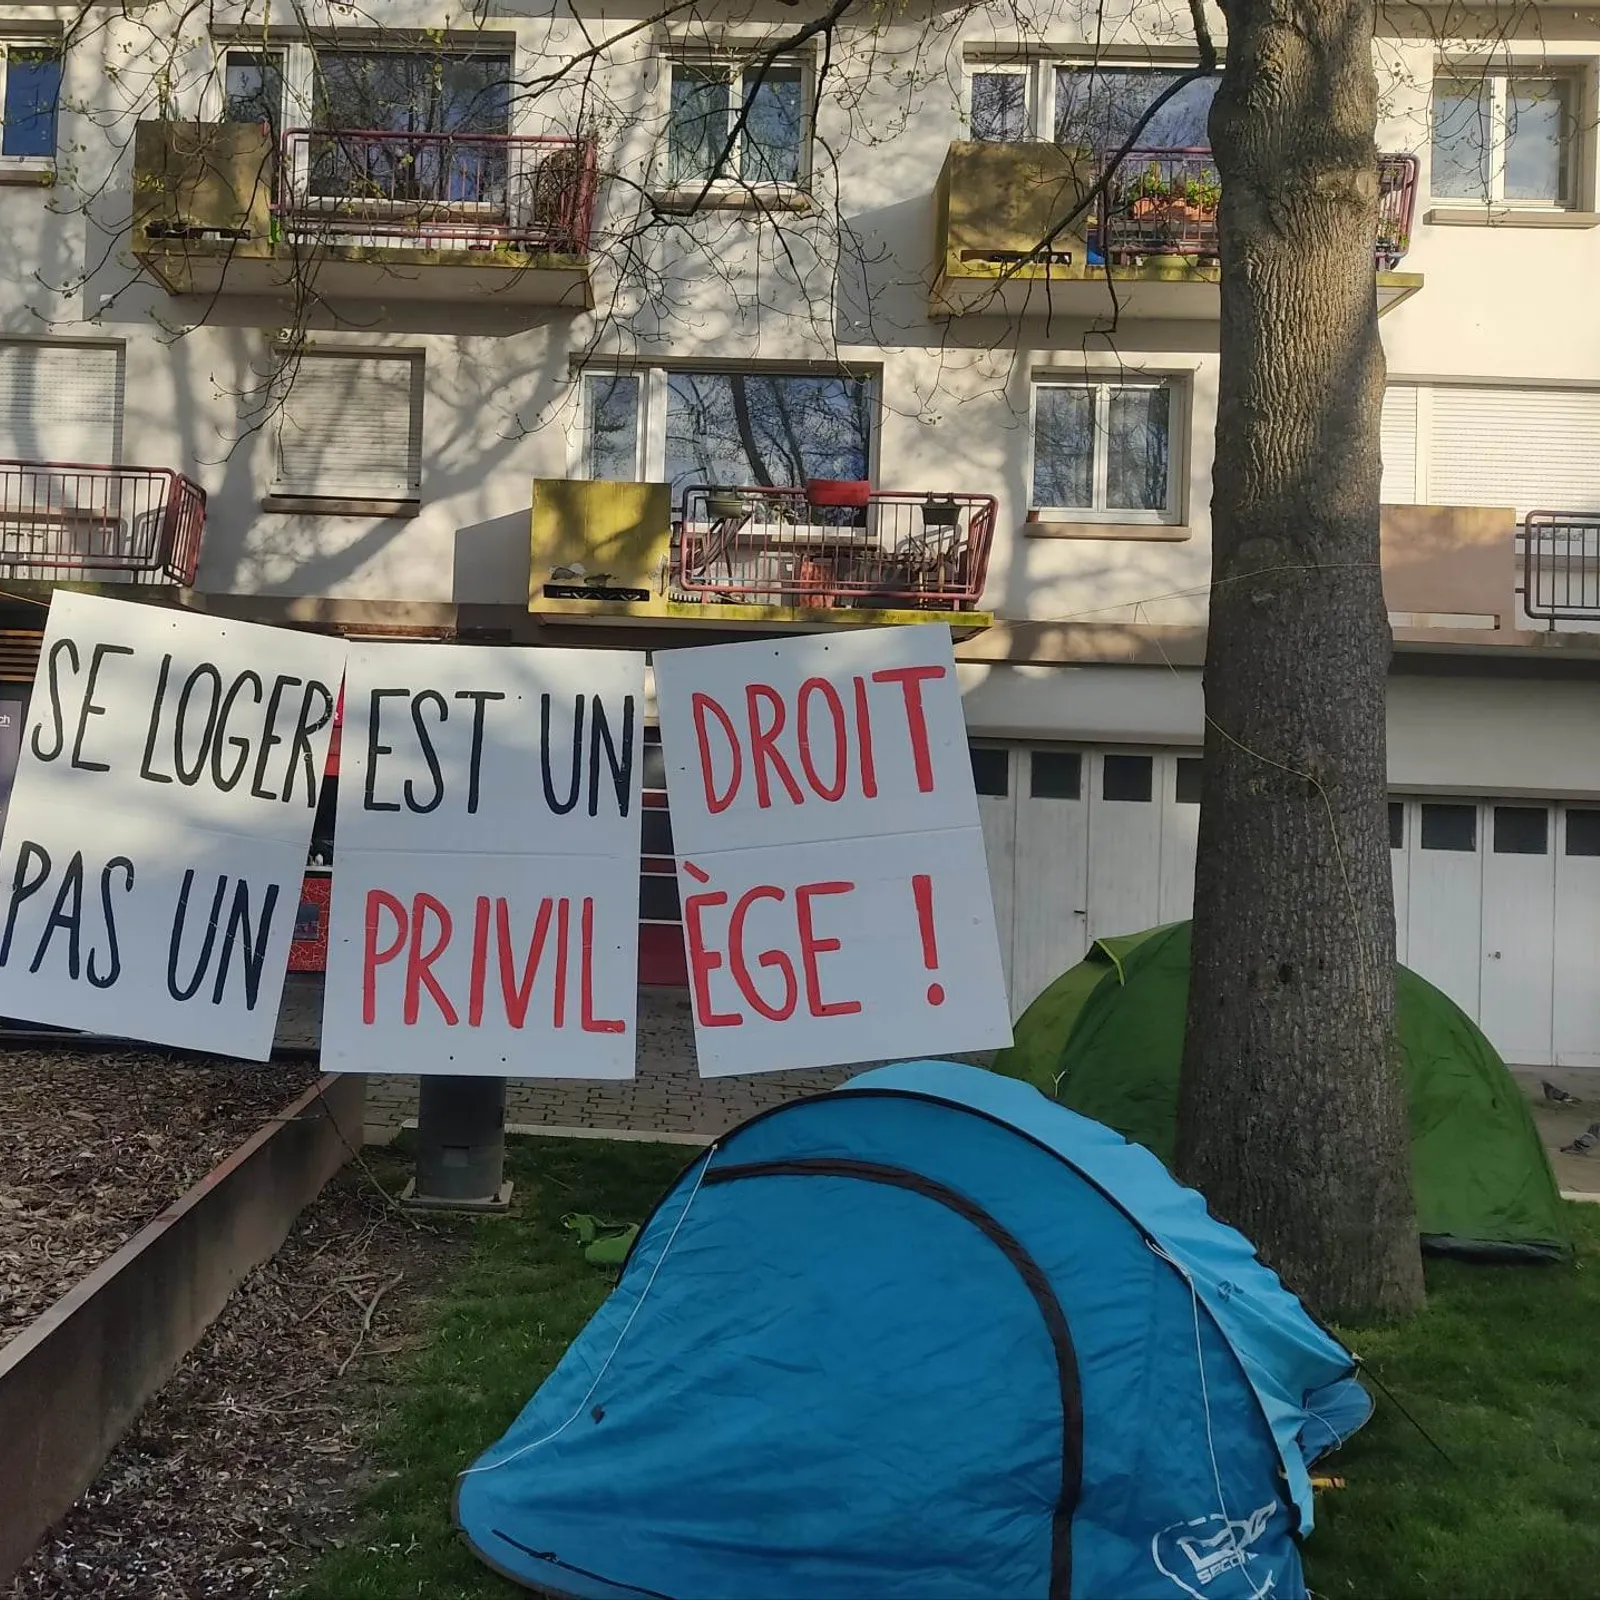 SE LOGER EST UN DROIT
PAS UN PRIVILÈGE !